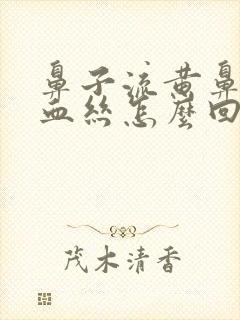 鼻子流黄鼻
血丝怎麽回
茂木清香